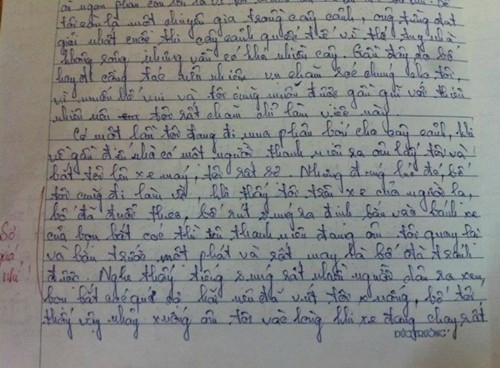 tôi còn là một chuyên gia trong cây cảnh, từng đạt
giải nhất cuộc thi cây cảnh quốc tế vì thế trong nhà
không rộng nhưng vẫn có khá nhiều cây. Gần đây ba bố
hay đi công tác nên nhiệm vụ chăm sóc chúng cho tôi,
vì muốn bố vui và tôi cũng muốn được gần gũi với thiên
nhiên nên tôi rất chăm chỉ làm việc này
Có một lần tôi đang đi mua phân bón cho cây cảnh, khi
về gần đến nhà có một người thanh niên ra ôm lấy tôi và
bắt tôi lên xe máy, tôi rất sợ. Nhưng đúng lúc đó, bố
tôi cũng đi làm về, khi thấy tôi trên xe của người lạ,
bố đã đuổi theo, bố rút súng ra định bắn vào bánh xe
của bọn bắt cóc thì tên thanh niên đang ôm tôi quay lại
và bắn trước một phát và rất may là bố đã tránh
được. Nghe thấy tiếng súng rất nhiều người dân ra xem,
bọn bắt cóc quá sợ hãi nên đã vứt tôi xuống, bố tôi
thấy vậy nhảy xuống ôm tôi vào lòng khi xe đang chạy rất
Sợ
quá
nhỉ!
ĐỨC TRƯỜNG